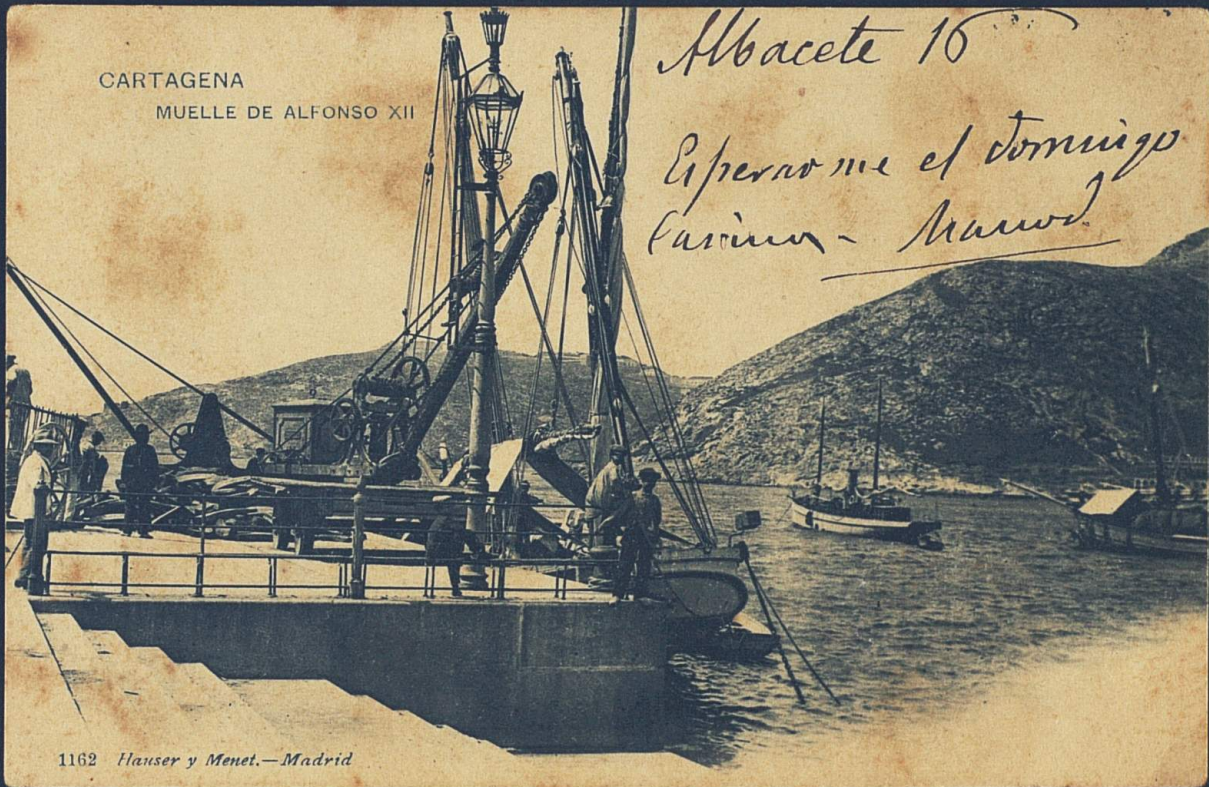 CARTAGENA
MUELLE DE ALFONSO XII
Albacete 16
Esperarme el domingo
1162 Hauser y Menet.—Madrid